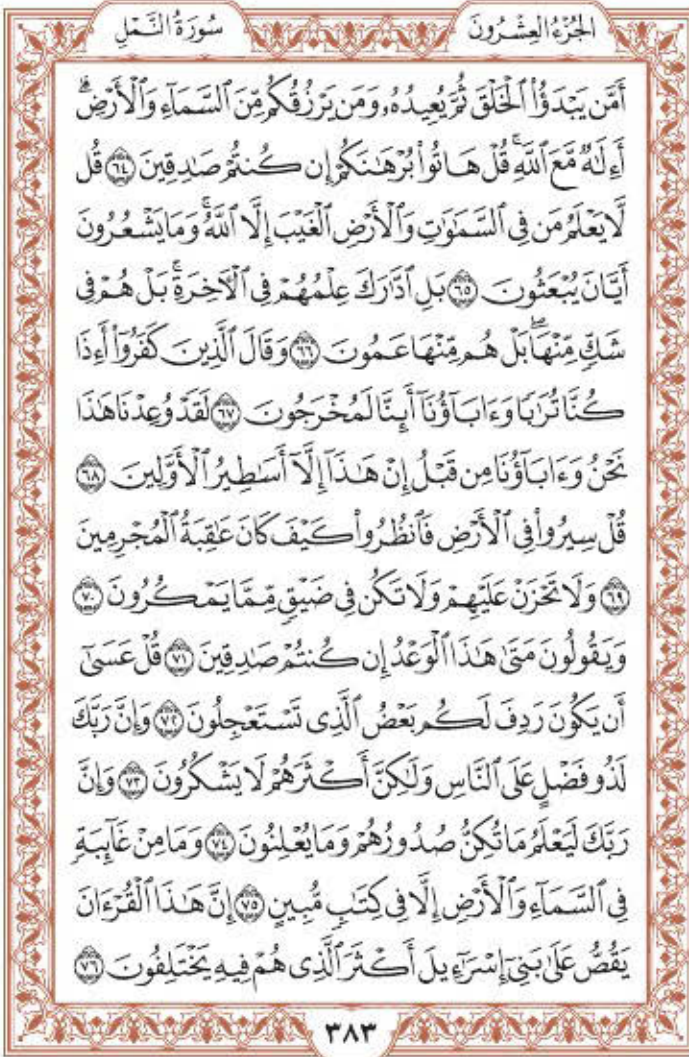 الجُزْءُ العِشْرُونَ
سُورَةُ النَّمْلِ
أَمَّن يَبْدَؤُاْ ٱلْخَلْقَ ثُمَّ يُعِيدُهُۥ وَمَن يَرْزُقُكُم مِّنَ ٱلسَّمَآءِ وَٱلْأَرْضِۗ
أَءِلَٰهٌ مَّعَ ٱللَّهِۚ قُلْ هَاتُواْ بُرْهَٰنَكُمْ إِن كُنتُمْ صَٰدِقِينَ ٦٤ قُل
لَّا يَعْلَمُ مَن فِى ٱلسَّمَٰوَٰتِ وَٱلْأَرْضِ ٱلْغَيْبَ إِلَّا ٱللَّهُۚ وَمَا يَشْعُرُونَ
أَيَّانَ يُبْعَثُونَ ٦٥ بَلِ ٱدَّٰرَكَ عِلْمُهُمْ فِى ٱلْأٓخِرَةِۚ بَلْ هُمْ فِى
شَكٍّ مِّنْهَاۖ بَلْ هُم مِّنْهَا عَمُونَ ٦٦ وَقَالَ ٱلَّذِينَ كَفَرُوٓاْ أَءِذَا
كُنَّا تُرَٰبًا وَءَابَآؤُنَآ أَئِنَّا لَمُخْرَجُونَ ٦٧ لَقَدْ وُعِدْنَا هَٰذَا
نَحْنُ وَءَابَآؤُنَا مِن قَبْلُ إِنْ هَٰذَآ إِلَّآ أَسَٰطِيرُ ٱلْأَوَّلِينَ ٦٨
قُلْ سِيرُواْ فِى ٱلْأَرْضِ فَٱنظُرُواْ كَيْفَ كَانَ عَٰقِبَةُ ٱلْمُجْرِمِينَ
٦٩ وَلَا تَحْزَنْ عَلَيْهِمْ وَلَا تَكُن فِى ضَيْقٍ مِّمَّا يَمْكُرُونَ ٧٠
وَيَقُولُونَ مَتَىٰ هَٰذَا ٱلْوَعْدُ إِن كُنتُمْ صَٰدِقِينَ ٧١ قُلْ عَسَىٰٓ
أَن يَكُونَ رَدِفَ لَكُم بَعْضُ ٱلَّذِى تَسْتَعْجِلُونَ ٧٢ وَإِنَّ رَبَّكَ
لَذُو فَضْلٍ عَلَى ٱلنَّاسِ وَلَٰكِنَّ أَكْثَرَهُمْ لَا يَشْكُرُونَ ٧٣ وَإِنَّ
رَبَّكَ لَيَعْلَمُ مَا تُكِنُّ صُدُورُهُمْ وَمَا يُعْلِنُونَ ٧٤ وَمَا مِنْ غَآئِبَةٍ
فِى ٱلسَّمَآءِ وَٱلْأَرْضِ إِلَّا فِى كِتَٰبٍ مُّبِينٍ ٧٥ إِنَّ هَٰذَا ٱلْقُرْءَانَ
يَقُصُّ عَلَىٰ بَنِىٓ إِسْرَٰٓءِيلَ أَكْثَرَ ٱلَّذِى هُمْ فِيهِ يَخْتَلِفُونَ ٧٦
٣٨٣